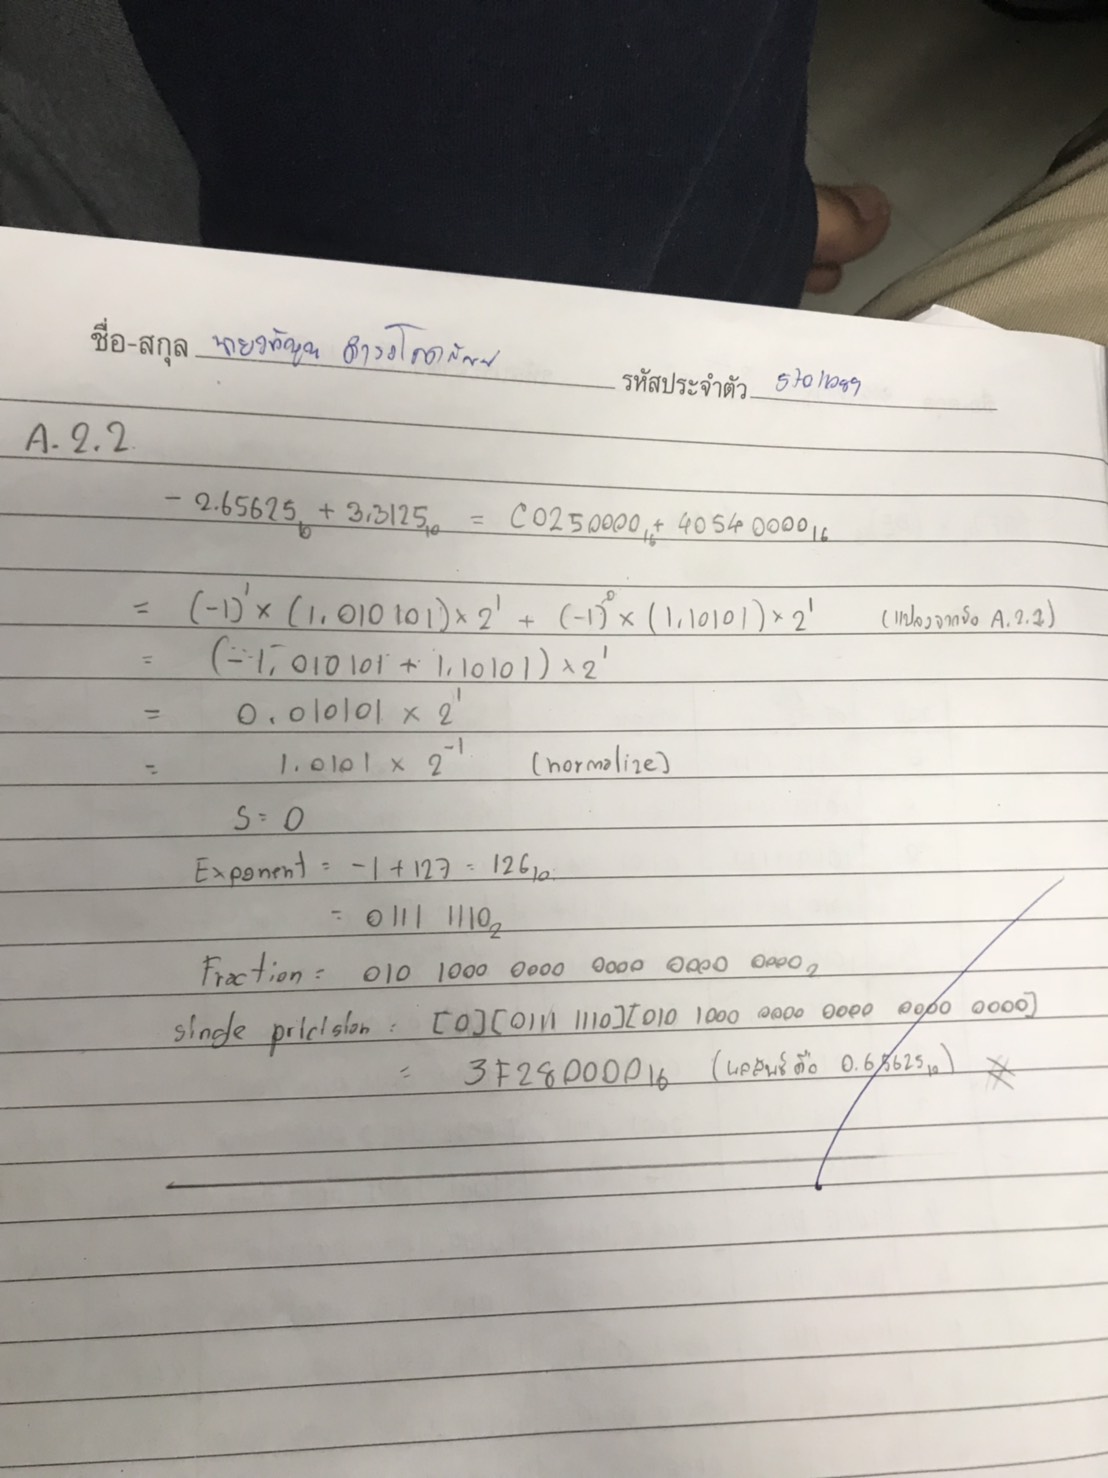 ชื่อ-สกุล
รหัสประจำตัว
A.2.2
- 2.65625₁₀ + 3.3125₁₀ = C0250000₁₆ + 40540000₁₆
= (-1)¹ × (1.010101) × 2¹ + (-1)⁰ × (1.10101) × 2¹ (แปลงจากข้อ A.2.1)
= (-1.010101 + 1.10101) × 2¹
= 0.010101 × 2¹
= 1.0101 × 2⁻¹ (normalize)
S = 0
Exponent = -1 + 127 = 126₁₀
= 0111 1110₂
Fraction = 010 1000 0000 0000 0000 0000₂
single pricision = [0][0111 1110][010 1000 0000 0000 0000 0000]
= 3F280000₁₆ (ผลลัพธ์คือ 0.65625₁₀)